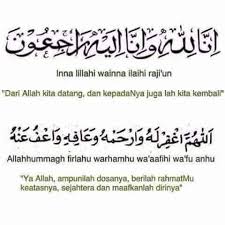 إِنَّا لِلّٰهِ وَإِنَّا إِلَيْهِ رَاجِعُوْنَ
Inna lillahi wainna ilaihi raji'un
"Dari Allah kita datang, dan kepadaNya juga lah kita kembali"
اَللّٰهُمَّ اغْفِرْ لَهُ وَارْحَمْهُ وَعَافِهِ وَاعْفُ عَنْهُ
Allahhummagh firlahu warhamhu wa'aafihi wa'fu anhu
"Ya Allah, ampunilah dosanya, berilah rahmatMu
keatasnya, sejahtera dan maafkanlah dirinya"